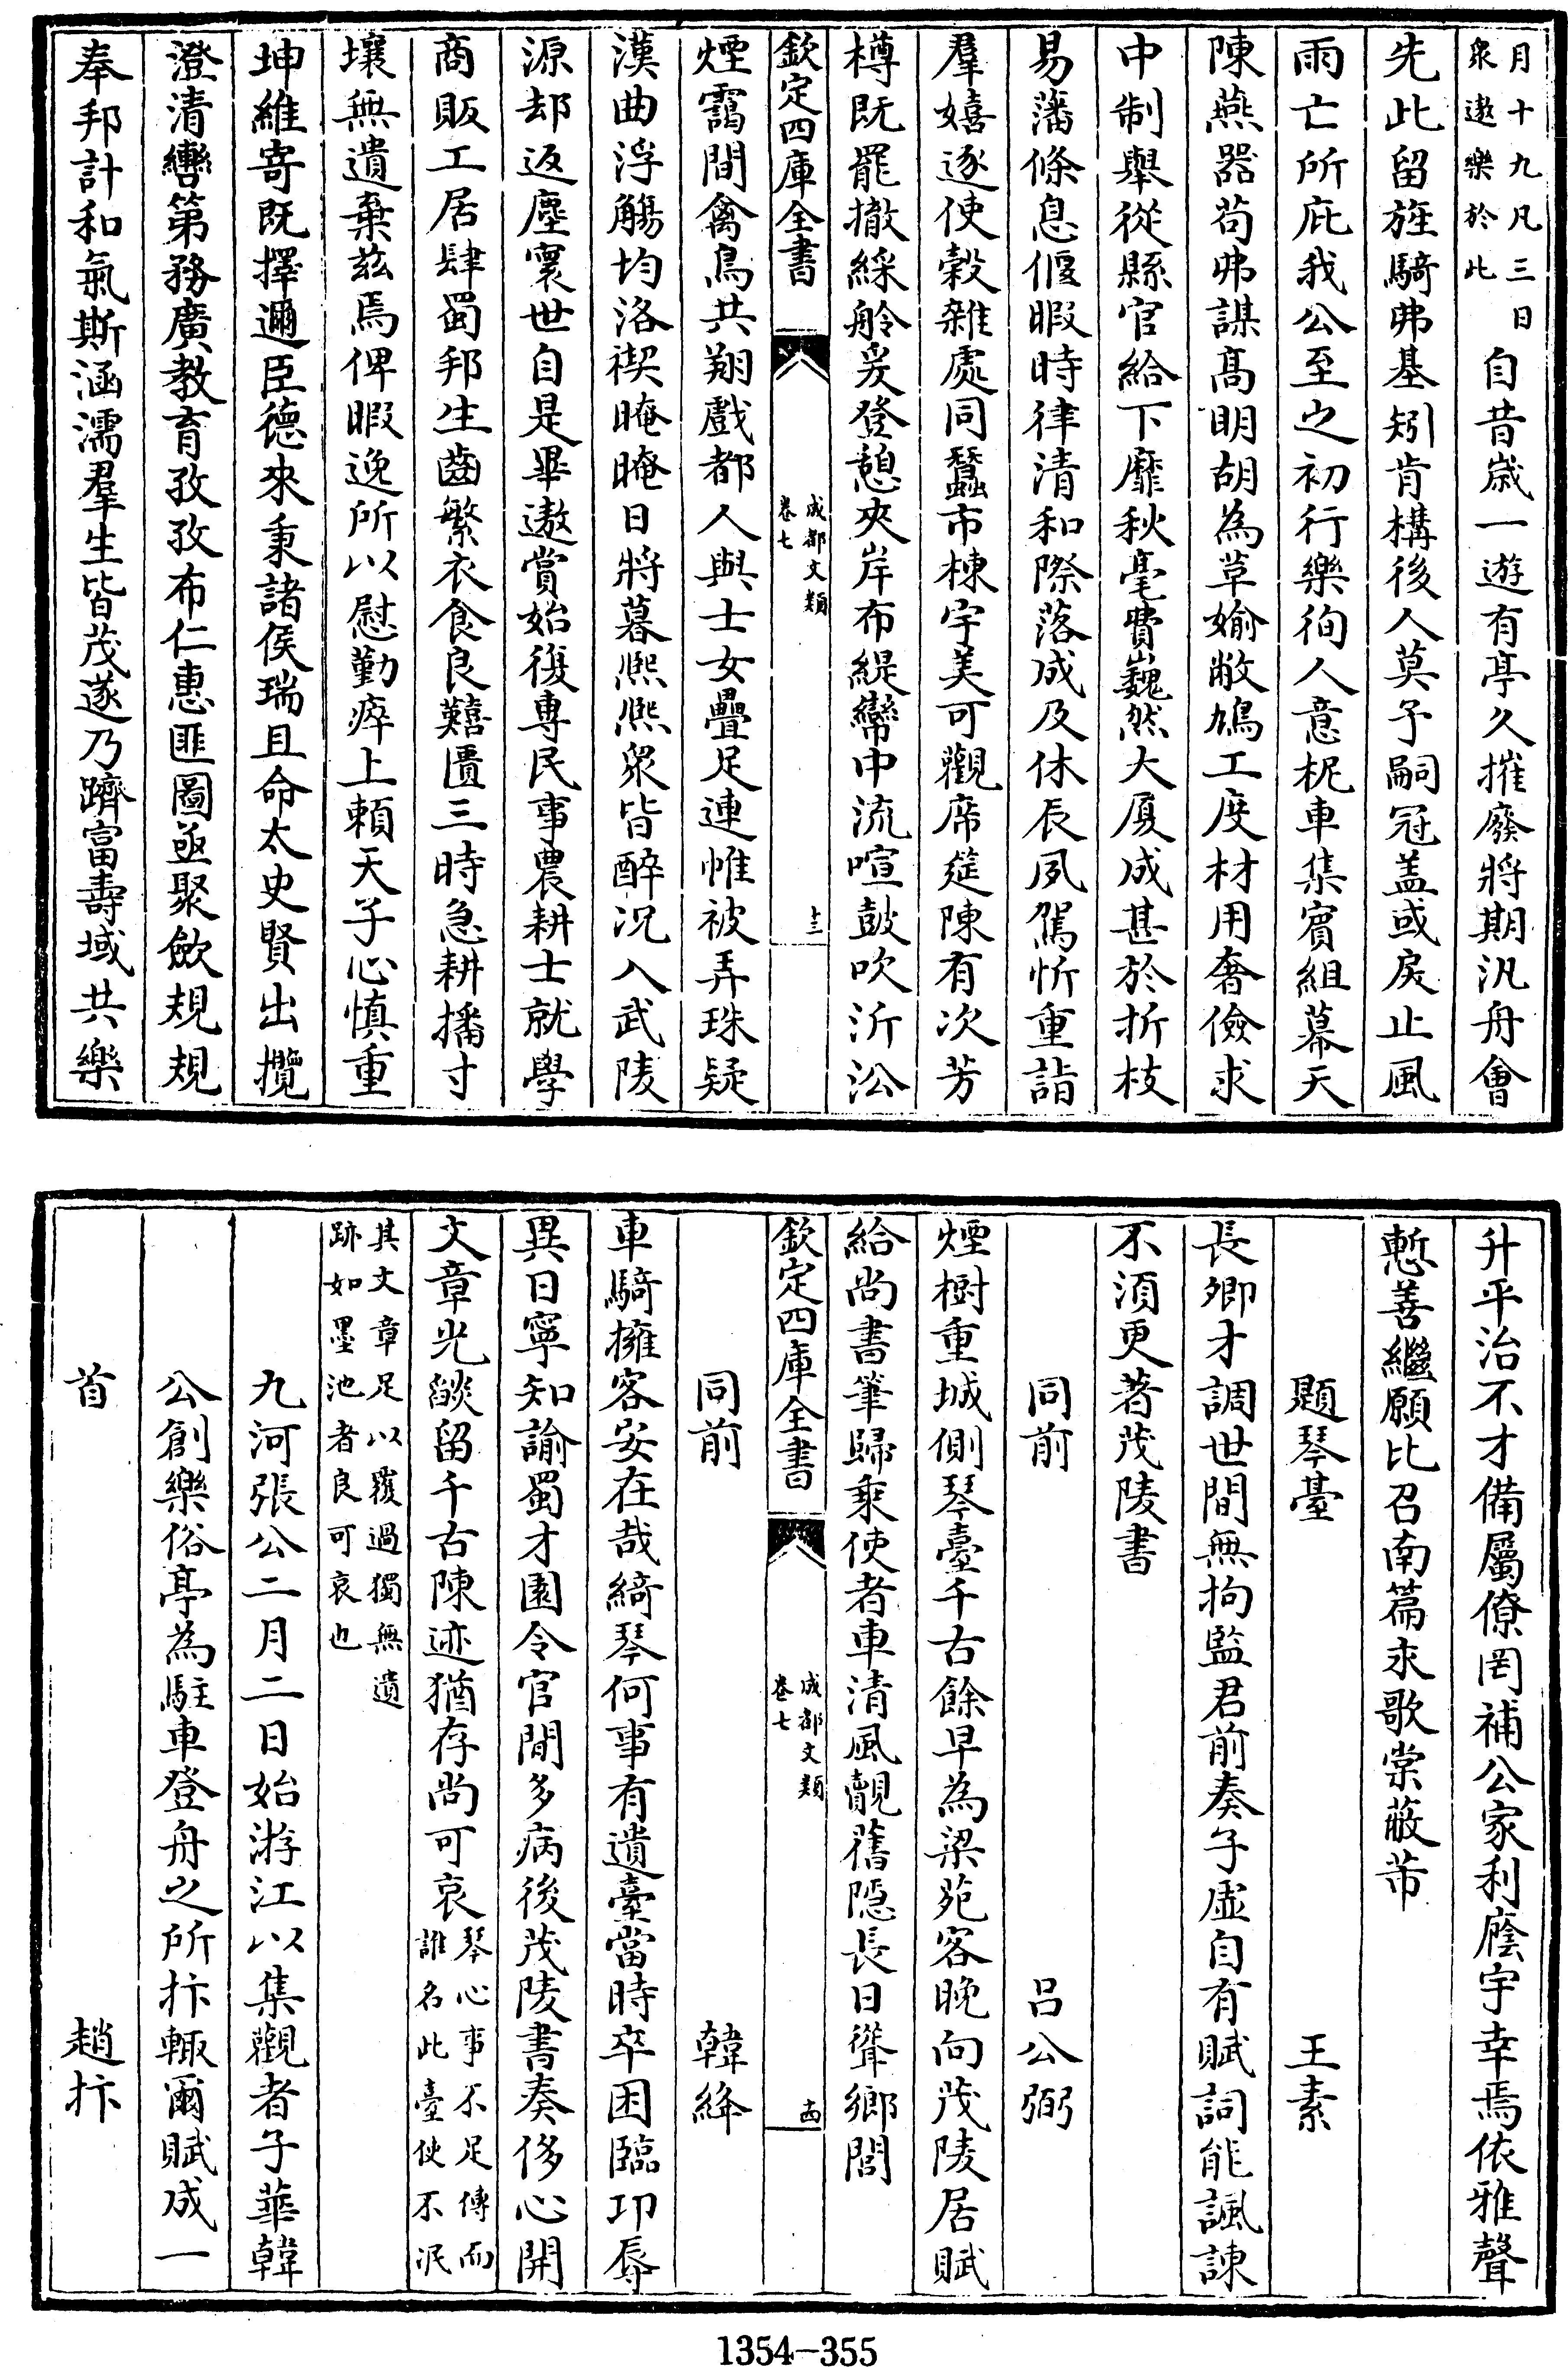 月十九凡三日
衆遨樂於此
自昔歳一遊有亭久摧廢將期汎舟會
先此留旌騎弗基矧肯構後人莫予嗣冠盖或戾止風
雨亡所庇我公至之初行樂徇人意柅車集賓組幕天
陳燕器茍弗謀髙明胡為草媮敝鳩工度材用奢儉求
中制舉從縣官給下靡秋毫費巍然大厦成甚於折枝
易藩條息偃暇時律清和際落成及休辰夙駕忻重詣
羣嬉逐使轂雜處同蠶市棟宇美可觀席筵陳有次芳
樽既罷撤綵舲爰登憩夾岸布緹巒中流喧鼓吹沂㳂
欽定四庫全書
成都文類
卷七
十三
煙靄間禽鳥共翔戲都人與士女疊足連帷被弄珠疑
漢曲浮觴均洛禊晻晻日將暮熈熈衆皆醉况入武陵
源却返塵寰世自是畢遨賞始復專民事農耕士就學
商販工居肆蜀邦生齒繁衣食良囏匱三時急耕播寸
壤無遺棄兹焉俾暇逸所以慰勤瘁上頼天子心慎重
坤維寄既擇邇臣德來秉諸侯瑞且命太史賢出攬
澄清轡第務廣教育孜孜布仁惠匪圖亟聚歛規規
奉邦計和氣斯涵濡羣生皆茂遂乃躋富壽域共樂
升平治不才備屬僚罔補公家利廕宇幸焉依雅聲
慙善繼願比召南篇永歌棠蔽芾
題琴臺 王素
長卿才調世間無拘監君前奏子虛自有賦詞能諷諫
不須更著茂陵書
同前 吕公弼
煙樹重城側琴臺千古餘早為梁苑客晚向茂陵居賦
給尚書筆歸乘使者車清風覿舊隱長日聳鄉閭
欽定四庫全書
成都文類
卷七
十四
同前 韓絳
車騎擁客安在哉綺琴何事有遺臺當時卒困臨卭辱
異日寧知諭蜀才園令官閒多病後茂陵書奏侈心開
文章光燄留千古陳迹猶存尚可哀
琴心事不足傳而
誰名此臺使不泯
其文章足以覆過獨無遺
跡如墨池者良可哀也
九河張公二月二日始游江以集觀者子華韓
公創樂俗亭為駐車登舟之所抃輒爾賦成一
首 趙抃
1354-355